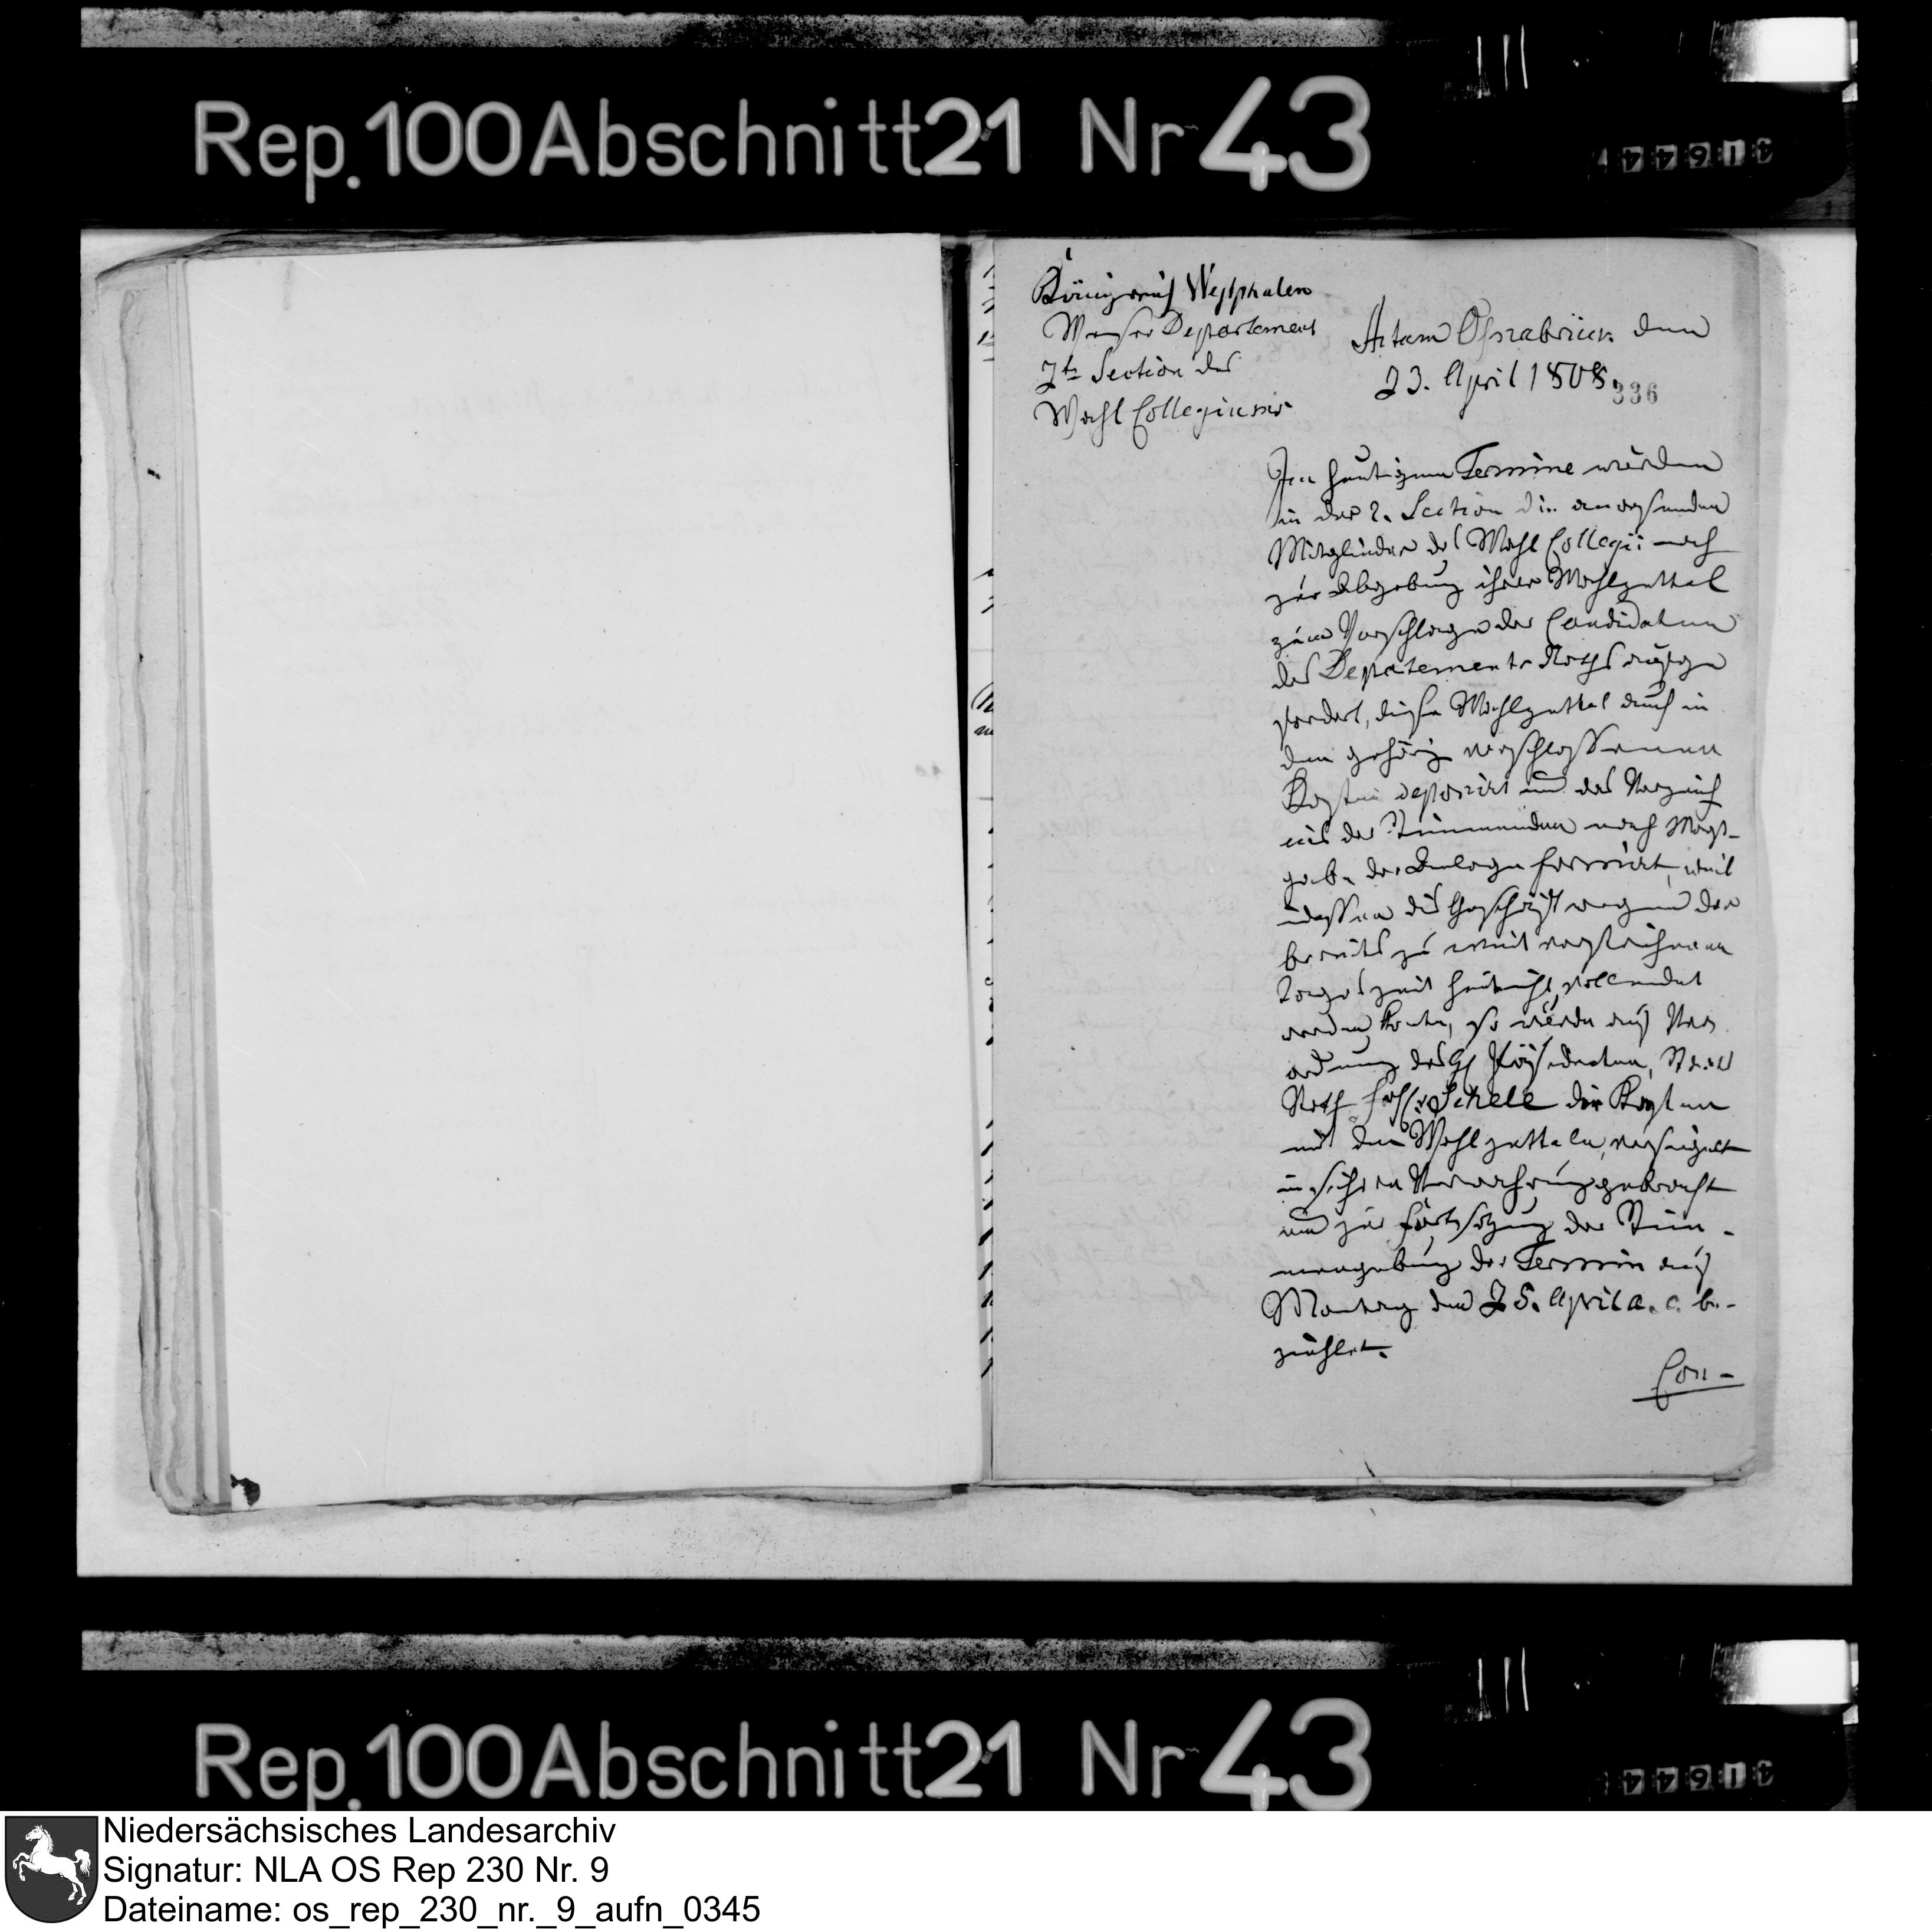 Rep. 100 Abschnitt 21 Nr 43
Königreich Westphalen
Weser Departement
2te Section des
Wahl Collegiums
Actum Osnabrück den
23. April 1808.
336
Im heutigen Termine wurden
in der 2. Section die anwesenden
Mitglieder des Wahl Collegii nach
zur Abgebung ihrer Wahlzettel
zum Vorschlage der Candidaten
des Departements Raths aufge
fordert, diese Wahlzettel auch in
den gehörig verschlossenen
Kasten deponirt und das Verzeich
nis der Stimmenden nach Maas-
gabe der Anlage formirt, weil
indessen das Geschäft wegen der
bereits zu weit verstrichenen
Tageszeit heute nicht vollendet
werden konte, so wurde auf Ver
ordnung des H Präsidenten,
Rath v Schele der Kasten
mit den Wahlzetteln, versiegelt
in sichere Verwahrung gebracht
und zur Fortsetzung der Stim-
mengebung der Termin auf
Montag den 25. April a. c. be-
ziehlet.
Con-
Rep. 100 Abschnitt 21 Nr 43
Niedersächsisches Landesarchiv
Signatur: NLA OS Rep 230 Nr. 9
Dateiname: os_rep_230_nr._9_aufn_0345